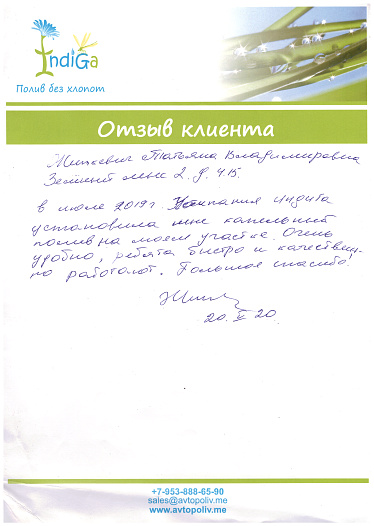 IndiGa
Полив без хлопот
Отзыв клиента
Татьяна Владимировна
2. д. 415.
в июле 2019г. Компания Индига
установила мне капельный
полив на моем участке. Очень
удобно, ребята быстро и качествен-
но работают. Большое спасибо!
20. V 20
+7-953-888-65-90
sales@avtopoliv.me
www.avtopoliv.me